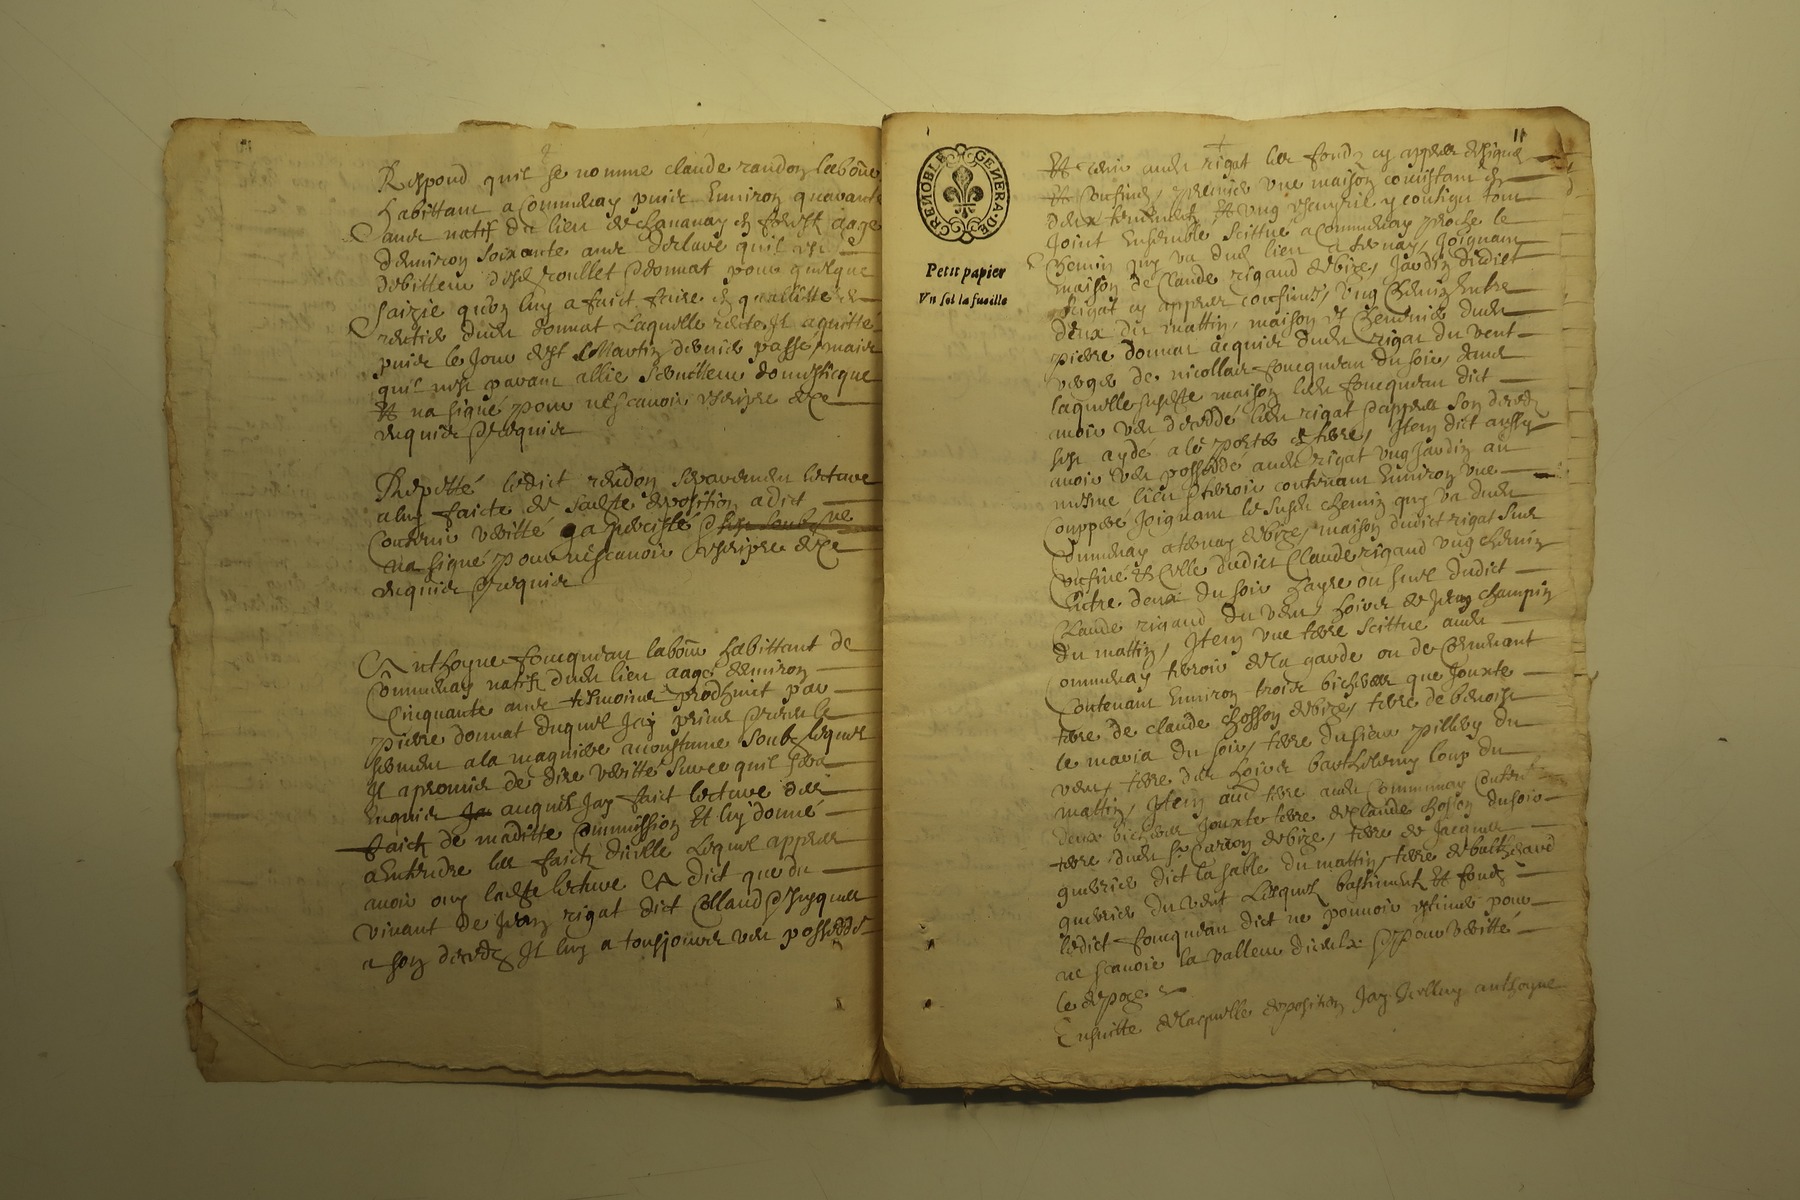 Respond quil se nomme claude randon laboũr
habittant a Commenay puis Environ quarante
ans natif du lieu de
denviron soixante ans declare quil
debitteur dud donnat pour quelque
saizie quon luy a faict faire
dud donnat Laquelle il aquitté
puis le Jour de st Martin dernier passé, mais
quil nest parant allié serviteur domesticque
Et na signé pour ne scavoir escripre de ce
enquis et requis
Repetté ledict randon separement lecture
a luy faicte de sadte deposition a dict
Contenir veritté y a persisté et
na signé pour ne scavoir escripre de ce
enquis et requis
Anthoyne foucquean laboũr habittant de
Commenay natif dud lieu aagé denviron
Cinquante ans tesmoing produict par
pierre donnat duquel Jay prins
serment a la maniere acoustume soubz lequel
Il a promis de dire veritté sur ce quil sera
Enquis auquel Jay faict lecture des
faictz de maditte Commission Et luy donné
a Entendre les faictz dicelle Lequel appres
avoir ouy ladte lecture A dict que du
vivant de Jean rigat dict Colland et Jusques
a son deces Il luy a tousjours veu posseder
11
GENERA · DE GRENOBLE
Petit papier
Vn sol la fueille
Et tenir aud rigat les fondz cy appres designés
Et Confinés, premier une maison consistant en
deux Et ung y contigu tout
Joint Ensemble scittue a Commenay proche le
Chemin quy va dud lieu a ternay, Joignant
maison de Claude rigaud de bize, Jardin dudict
Rigat cy appres confiné, ung Chemin Entre
deux du mattin, maison Et dud
pierre donnat acquis dud rigat du vent
verger de nicollas foucquean du soir, dans
laquelle susdte maison led foucquean dict
avoir veu deceder led rigat et appres son deced
sest aydé a le porter en terre, Item dict aussy
avoir veu possedé aud rigat ung Jardin au
mesme lieu et terroir contenant Environ une
Coupperé Joignant le susd chemin quy va dud
Commenay a ternay de bize, maison dudict rigat sus
confiné Et Celle dudict Claude rigaud ung chemin
Entre deux du soir, hayre ou suel dudict
Claude rigaud du vent, hoirs de Jean champin
du mattin, Item une terre scittue aud
Commenay terroir de la garde ou de
Contenant Environ trois bicherees que Jouxte
terre de claude chosson de bize, terre de benoist
le maria du soir, terre du sieur pillion du
vent, terre des hoirs barthelemy loup du
mattin, Item aũe terre aud Commenay
deux bicherees Jouxte terre de claude choson du soir
terre dud sr de bize, terre de Jacques
guerrier dict la sable du mattin, terre de
guerrier du vent Lesquelz bastimentz Et fondz
ledict foucquean dict ne pouvoir estimer pour
ne scavoir la valleur diceulx et pour veritté
le depoze
Ensuitte de laquelle deposition Jay anthoyne